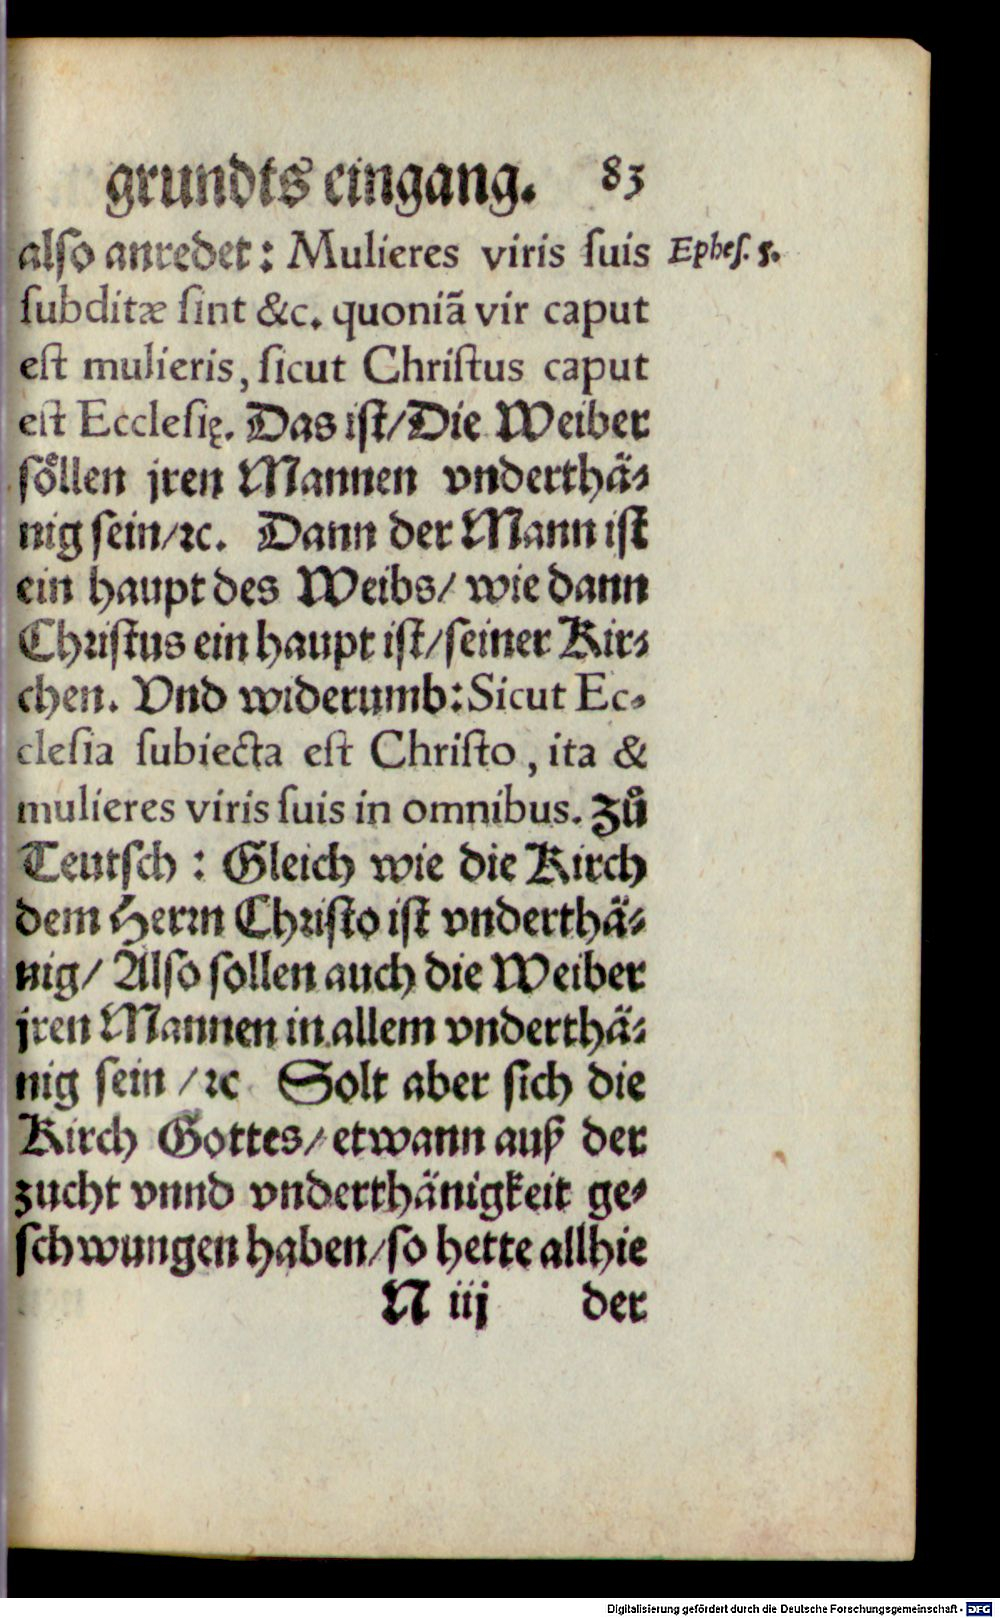 grundts eingang. 83
also anredet: Mulieres viris ſuis Epheſ. 5.
ſubditæ ſint &c. quoniã vir caput
eſt mulieris, ſicut Chriſtus caput
eſt Eccleſię. Das iſt/Die Weiber
ſoͤllen jren Mannen vnderthaͤ⸗
nig ſein/ꝛc. Dann der Mann iſt
ein haupt des Weibs/ wie dann
Chriſtus ein haupt iſt/ſeiner Kir⸗
chen. Vnd widerumb: Sicut Ec-
cleſia ſubiecta eſt Chriſto, ita &
mulieres viris ſuis in omnibus. Zuͦ
Teutſch: Gleich wie die Kirch
dem Herꝛn Chꝛiſto iſt vnderthaͤ⸗
nig/ Alſo ſollen auch die Weiber
jren Mannen in allem vnderthaͤ⸗
nig ſein /ꝛc Solt aber ſich die
Kirch Gottes/ etwann auß der
zucht vnnd vnderthaͤnigkeit ge⸗
ſchwungen haben/ſo hette allhie
N iij der
Digitalisierung gefördert durch die Deutsche Forschungsgemeinschaft - DFG